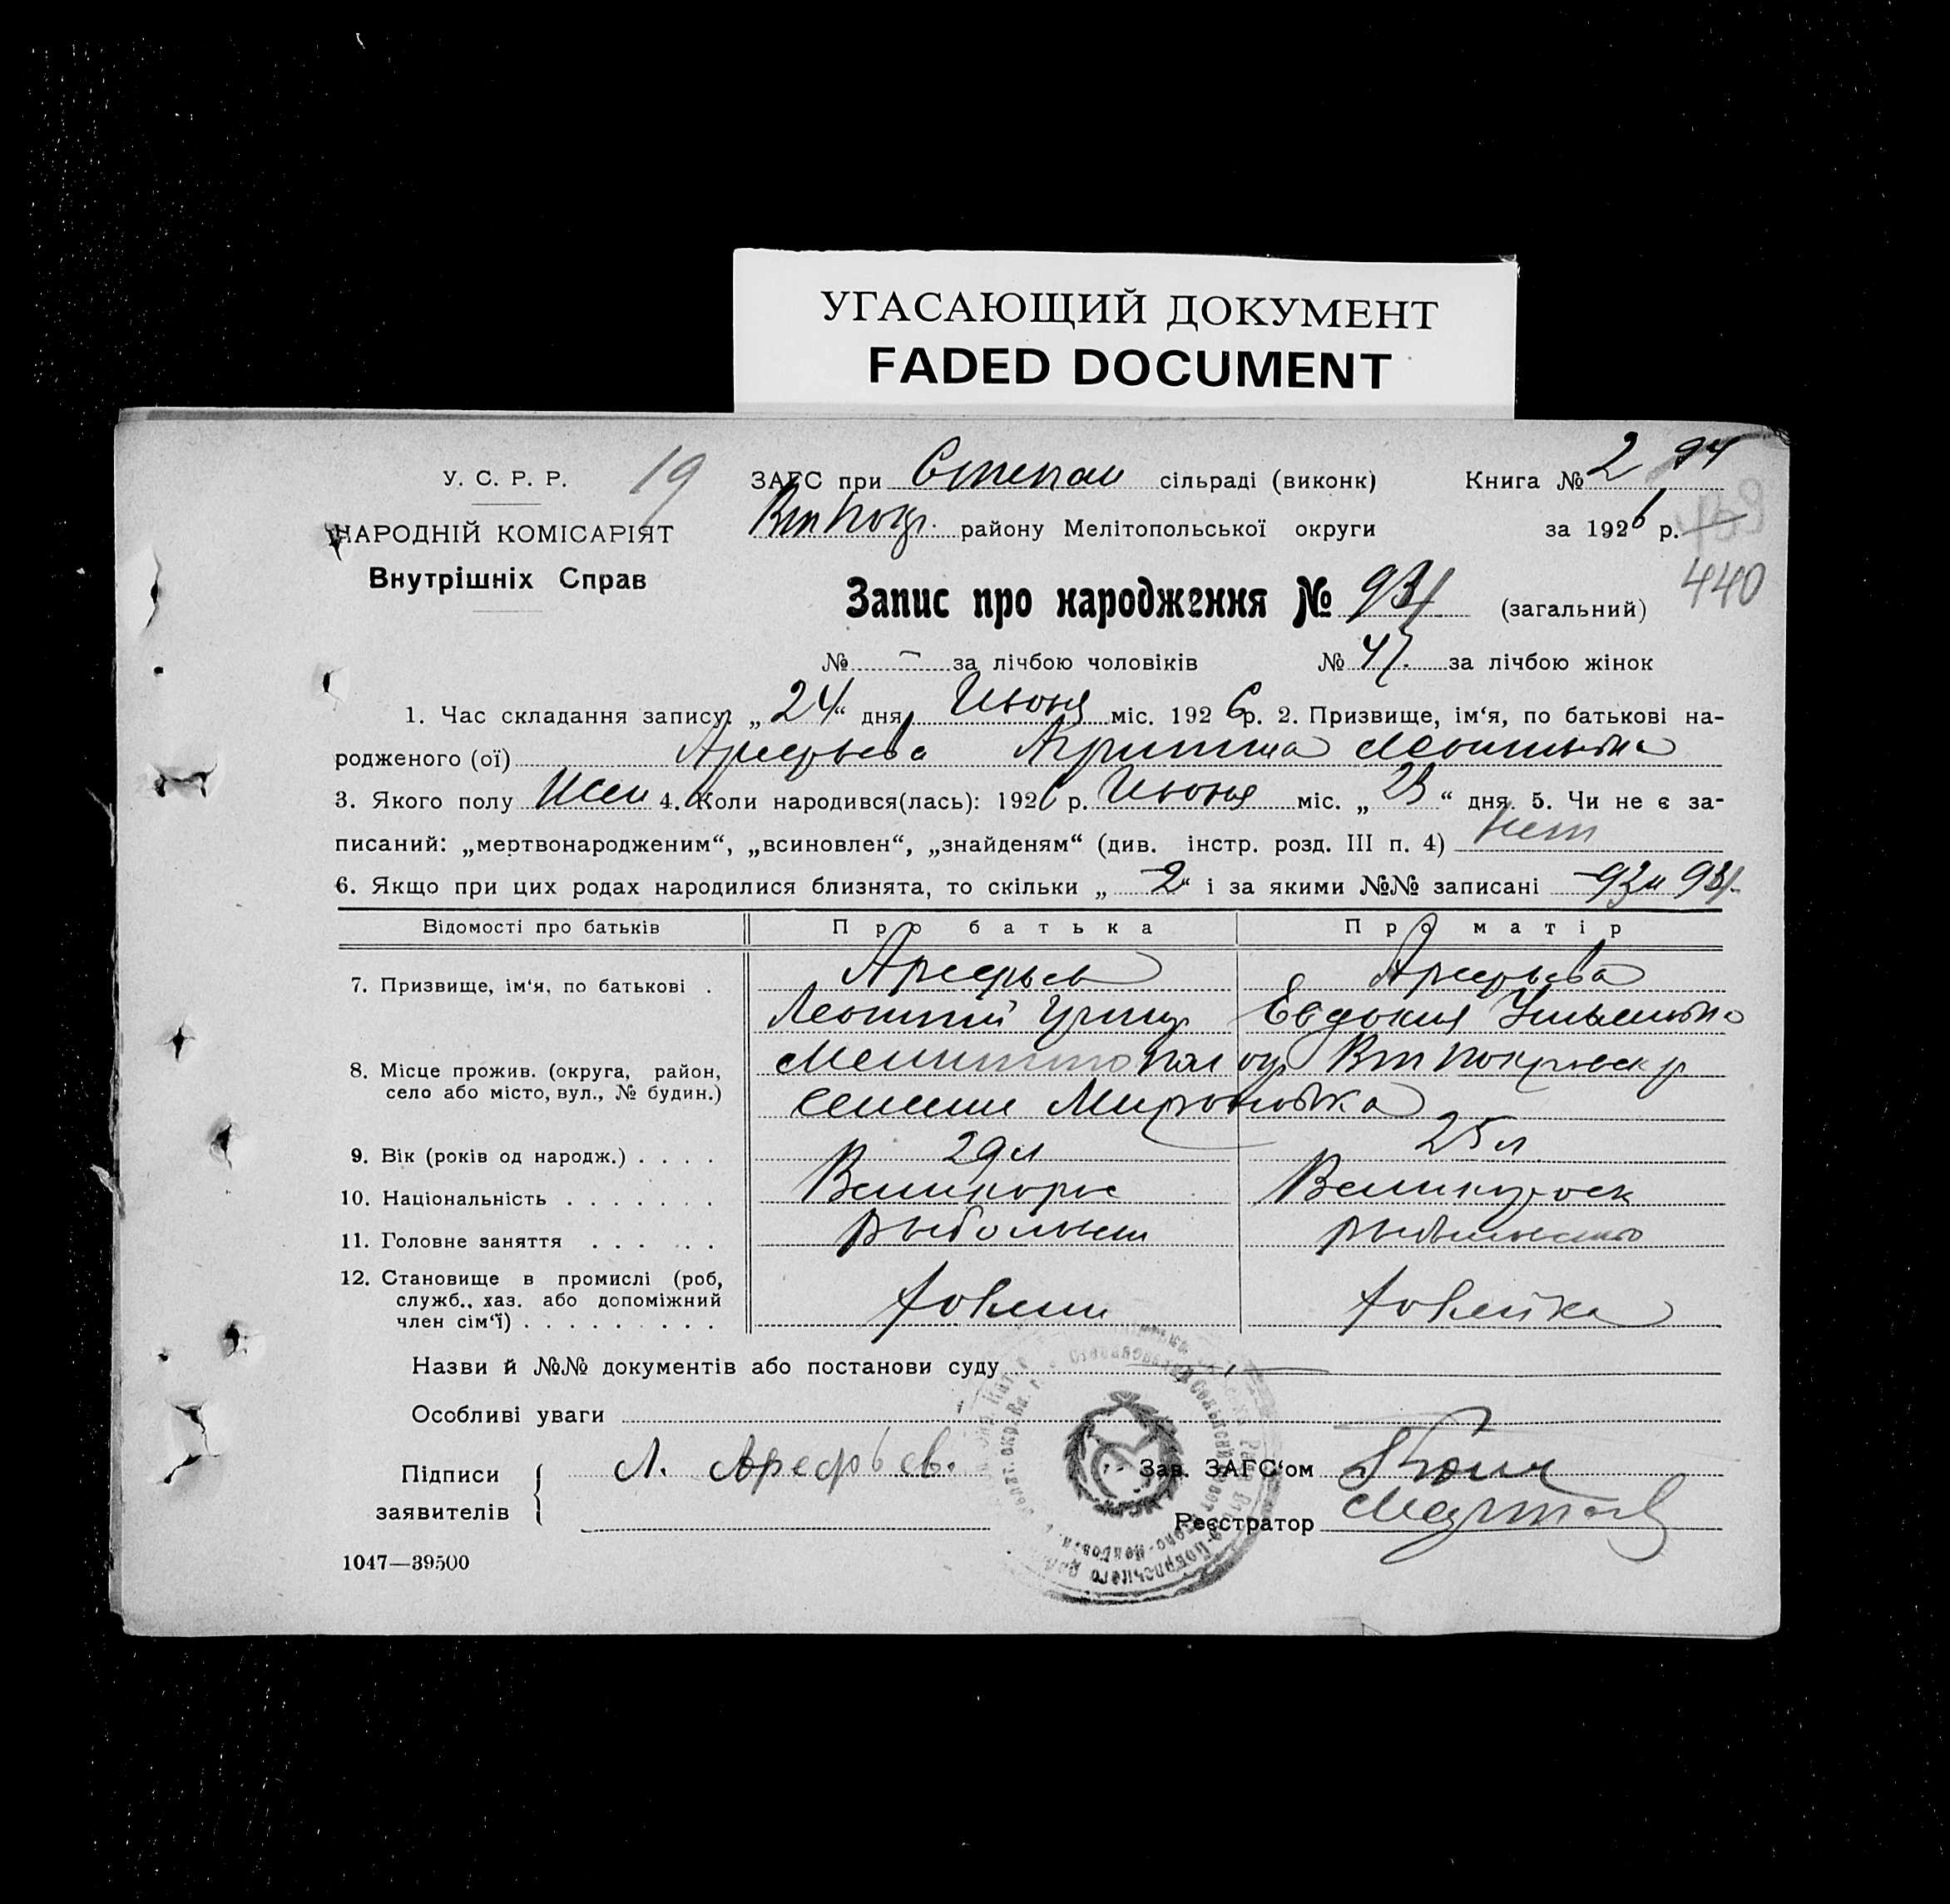 УГАСАЮЩИЙ ДОКУМЕНТ
FADED DOCUMENT
У. С. Р. Р.
19
ЗАГС при Степан сільраді (виконк)
Книга № 2 94
НАРОДНІЙ КОМІСАРІЯТ
Вт Покр. району Мелітопольської округи
за 1926 р.
Внутрішніх Справ
440
Запис про народження № 94 (загальний)
№ — за лічбою чоловіків № 47. за лічбою жінок
1. Час складання запису: „24“ дня Июня міс. 1926 р. 2. Призвище, ім‘я, по батькові на-
родженого (ої) Арефьева
3. Якого полу Жен 4. Коли народився(лась): 1926 р. Июня міс. „23“ дня. 5. Чи не є за-
писаний: „мертвонародженим“, „всиновлен“, „знайденям“ (див. інстр. розд. III п. 4) нет
6. Якщо при цих родах народилися близнята, то скільки „2“ і за якими №№ записані 93 и 94
Відомості про батьків Про батька Про матір
7. Призвище, ім‘я, по батькові . Арефьев Арефьева
Леонтий Евдокия
8. Місце прожив. (округа, район, Мелитопол окр Вт Покровск р
село або місто, вул., № будин.) селение Мироновка
9. Вік (років од народж.) . . . . 29 л 25 л
10. Національність . . . . . . . Великорос Великоросск
11. Головне заняття . . . . . .
12. Становище в промислі (роб,
служб., хаз. або допоміжний хозяин хозяйка
член сім‘ї) . . . . . . . . .
Назви й №№ документів або постанови суду —
Особливі уваги
Підписи Л. Арефьев. Зав. ЗАГС‘ом
заявителів Реєстратор
1047—39500